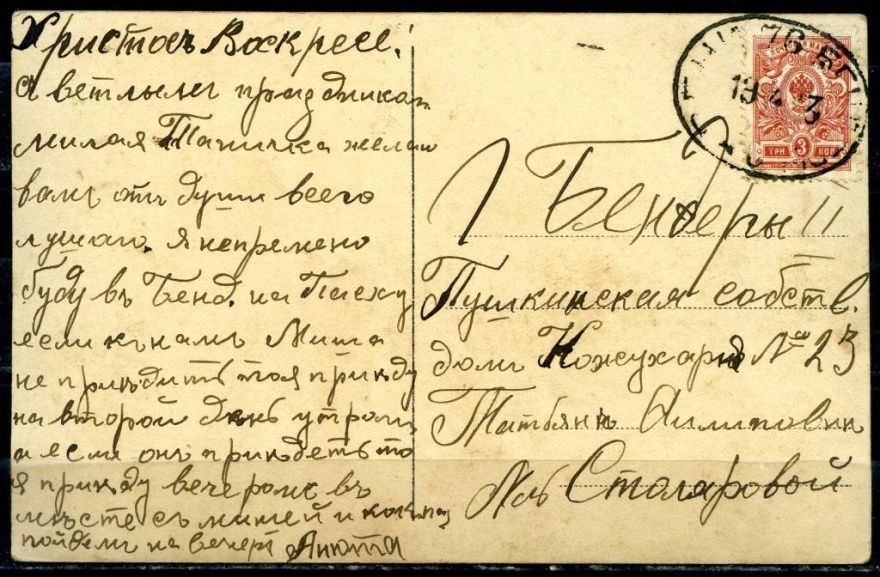 Христосъ Воскресе!
Светлымъ праздникомъ
милая Таничка желаю
вамъ отъ души всего
лушаго. я непремено
буду въ Бенд. на Пасху
если къ намъ Миша
не приѣдитъ то я приѣду
на второй день утромъ
а если онъ приѣдетъ то
я приѣду вечеромъ въ
мѣсте съ мишей и
пойдемъ на вечеръ Анюта
19 4 3
ТРИ 3 КОП
Г Бендеры
Пушкинская собств.
домъ Кожухаря № 23
Татьянѣ
Столяровой